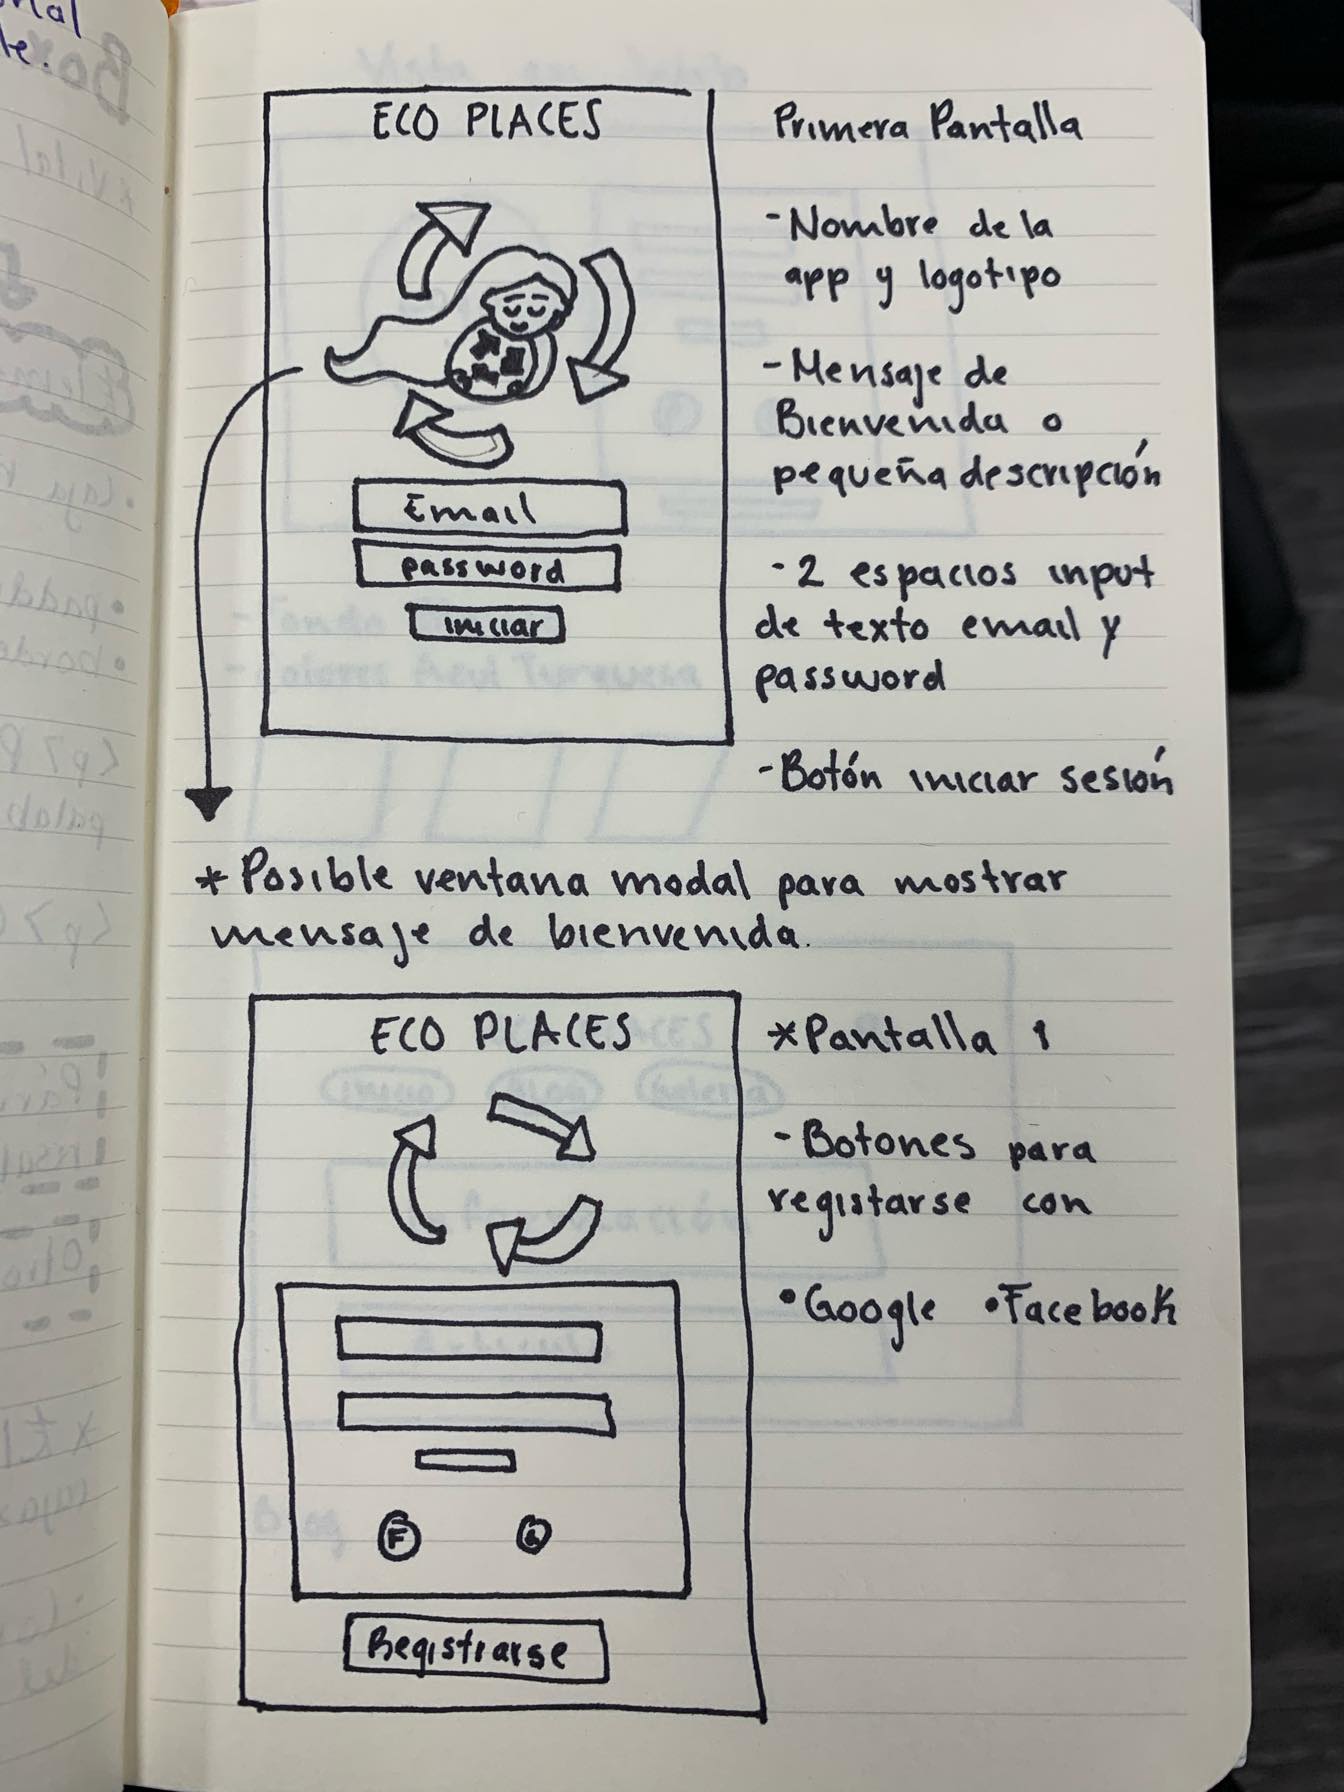 nal
te.
ECO PLACES
Email
password
iniciar
Primera Pantalla
-Nombre de la
app y logotipo
-Mensaje de
Bienvenida o
pequeña descripción
-2 espacios input
de texto email y
password
-Botón iniciar sesión
*Posible ventana modal para mostrar
mensaje de bienvenida.
ECO PLACES
F
G
Registrarse
*Pantalla 1
-Botones para
registarse con
•Google •Facebook